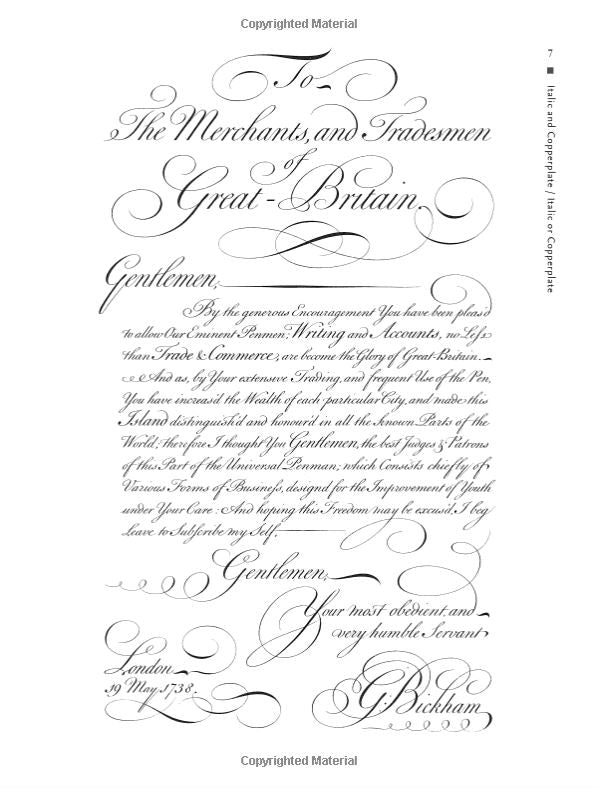 Copyrighted Material
7
Italic and Copperplate / Italic or Copperplate
To
The Merchants, and Tradesmen
of
Great-Britain.
Gentlemen,
By the generous Encouragement You have been pleas'd
to allow Our Eminent Penmen; Writing and Accounts, no Leſs
than Trade & Commerce, are become the Glory of Great-Britain.
And as, by Your extensive Trading, and frequent Use of the Pen,
You have increas'd the Wealth of each particular City, and made this
Island distinguish'd and honour'd in all the known Parts of the
World; therefore I thought You Gentlemen, the best Judges & Patrons
of this Part of the Universal Penman; which Consists chiefly of
Various Forms of Busineſs, design'd for the Improvement of Youth
under Your Care: And hoping this Freedom may be excus'd, I beg
Leave to Subſcribe my Self,
Gentlemen,
Your most obedient, and
very humble Servant
London
19 May 1738.
G. Bickham
Copyrighted Material